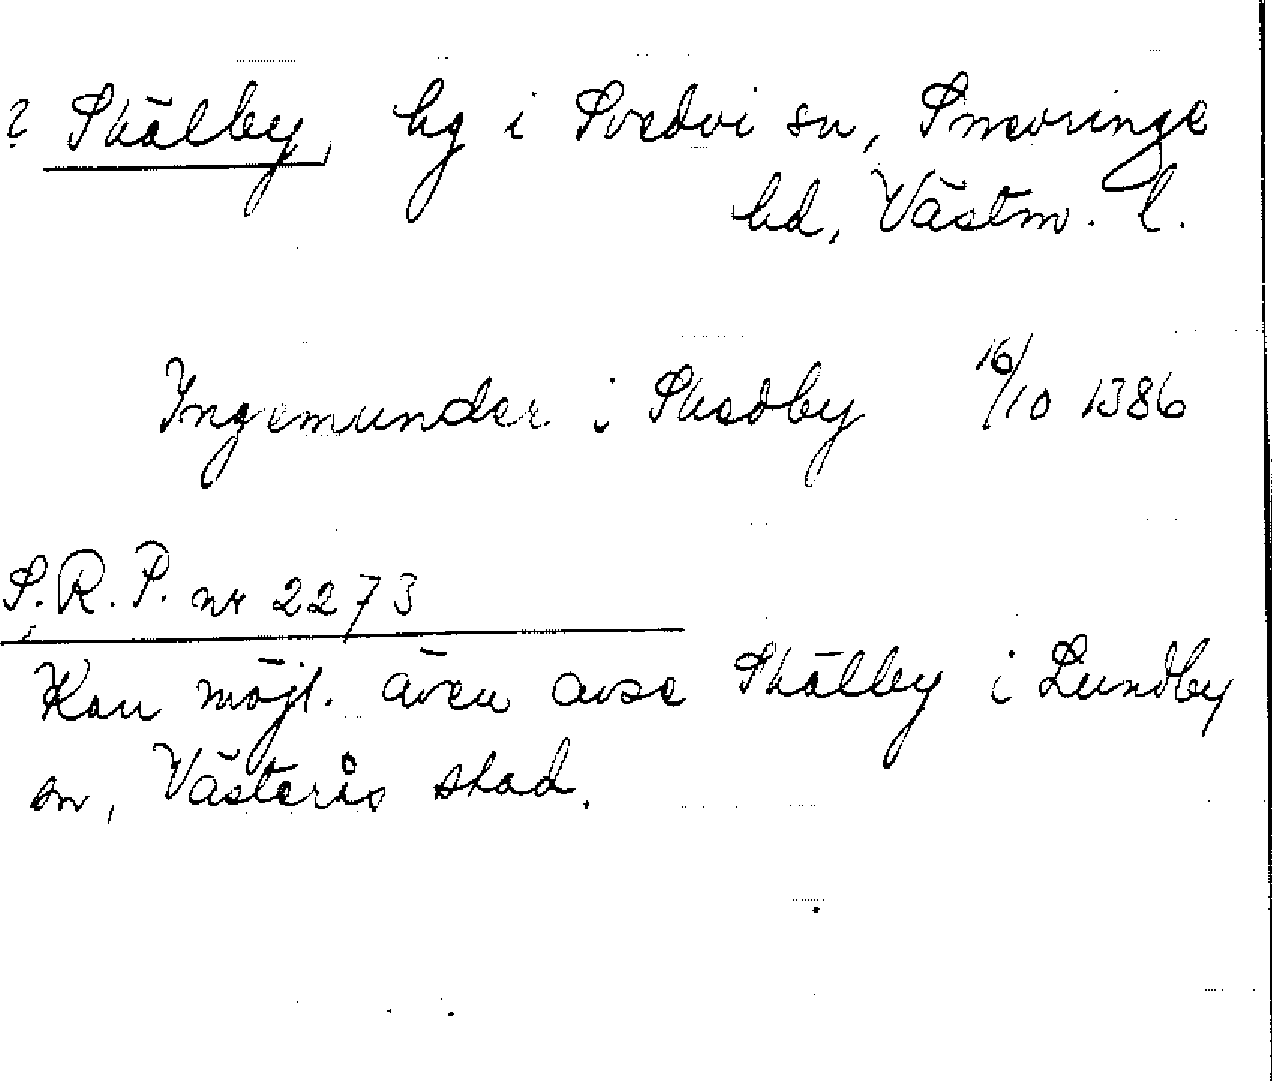 ? Skälby, bg i Svedvi sn, Snevringe
hd, Västm. l.
Ingemunder i Skedby 16/10 1386
S.R.P. nr 2273
Kan möjl. även avse Skälby i Lundby
sn, Västerås stad.